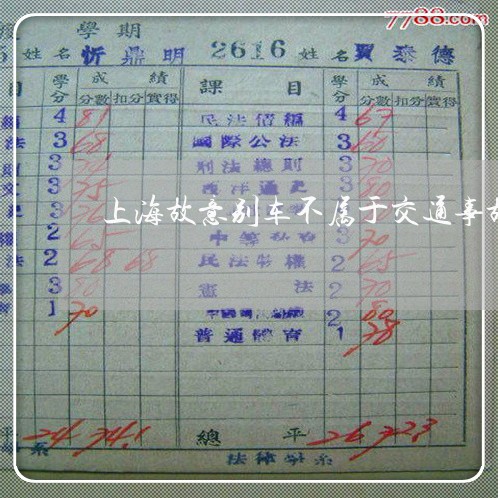 7788.com
學期
5 姓名 忻鼎明 2616 姓名 賈泰德
目 學分 成績 課目 學分 成績
分數 扣分 實得 分數 扣分 實得
4 81 民法債編 4 67
法 3 68 國際公法 3 60
3 刑法總則 3 70
3 75 西洋通史 3 80
上海故意别车不属于交通事故
2 65 3 70
法 2 68 68 民法物權 2 65
3 80 憲法 2 70
1 70 2 80
普通體育 1 78
平 24 74.1 總平 26 72.3
系 法律學系